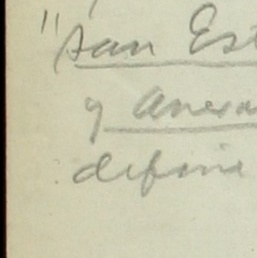 "San Est
y anexa
define